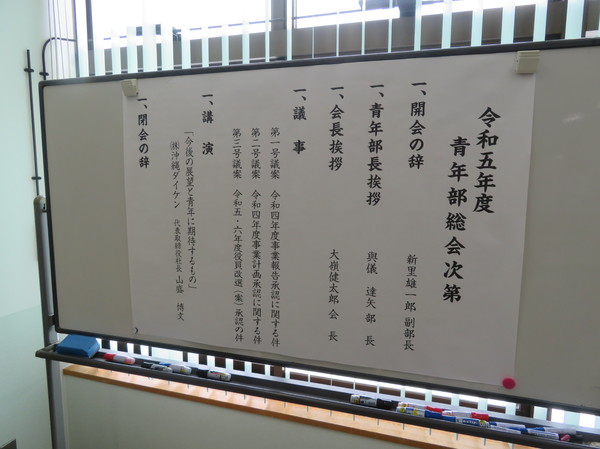 令和五年度
青年部総会次第
一、開会の辞 新里雄一郎 副部長
一、青年部長挨拶 與儀 達矢 部 長
一、会長挨拶 大嶺健太郎 会 長
一、議 事
第一号議案 令和四年度事業報告承認に関する件
第二号議案 令和四年度事業計画承認に関する件
第三号議案 令和五・六年度役員改選(案)承認の件
一、講 演
「今後の展望と青年に期待するもの」
㈱沖縄ダイケン 代表取締役社長 山盛 博文
一、閉会の辞